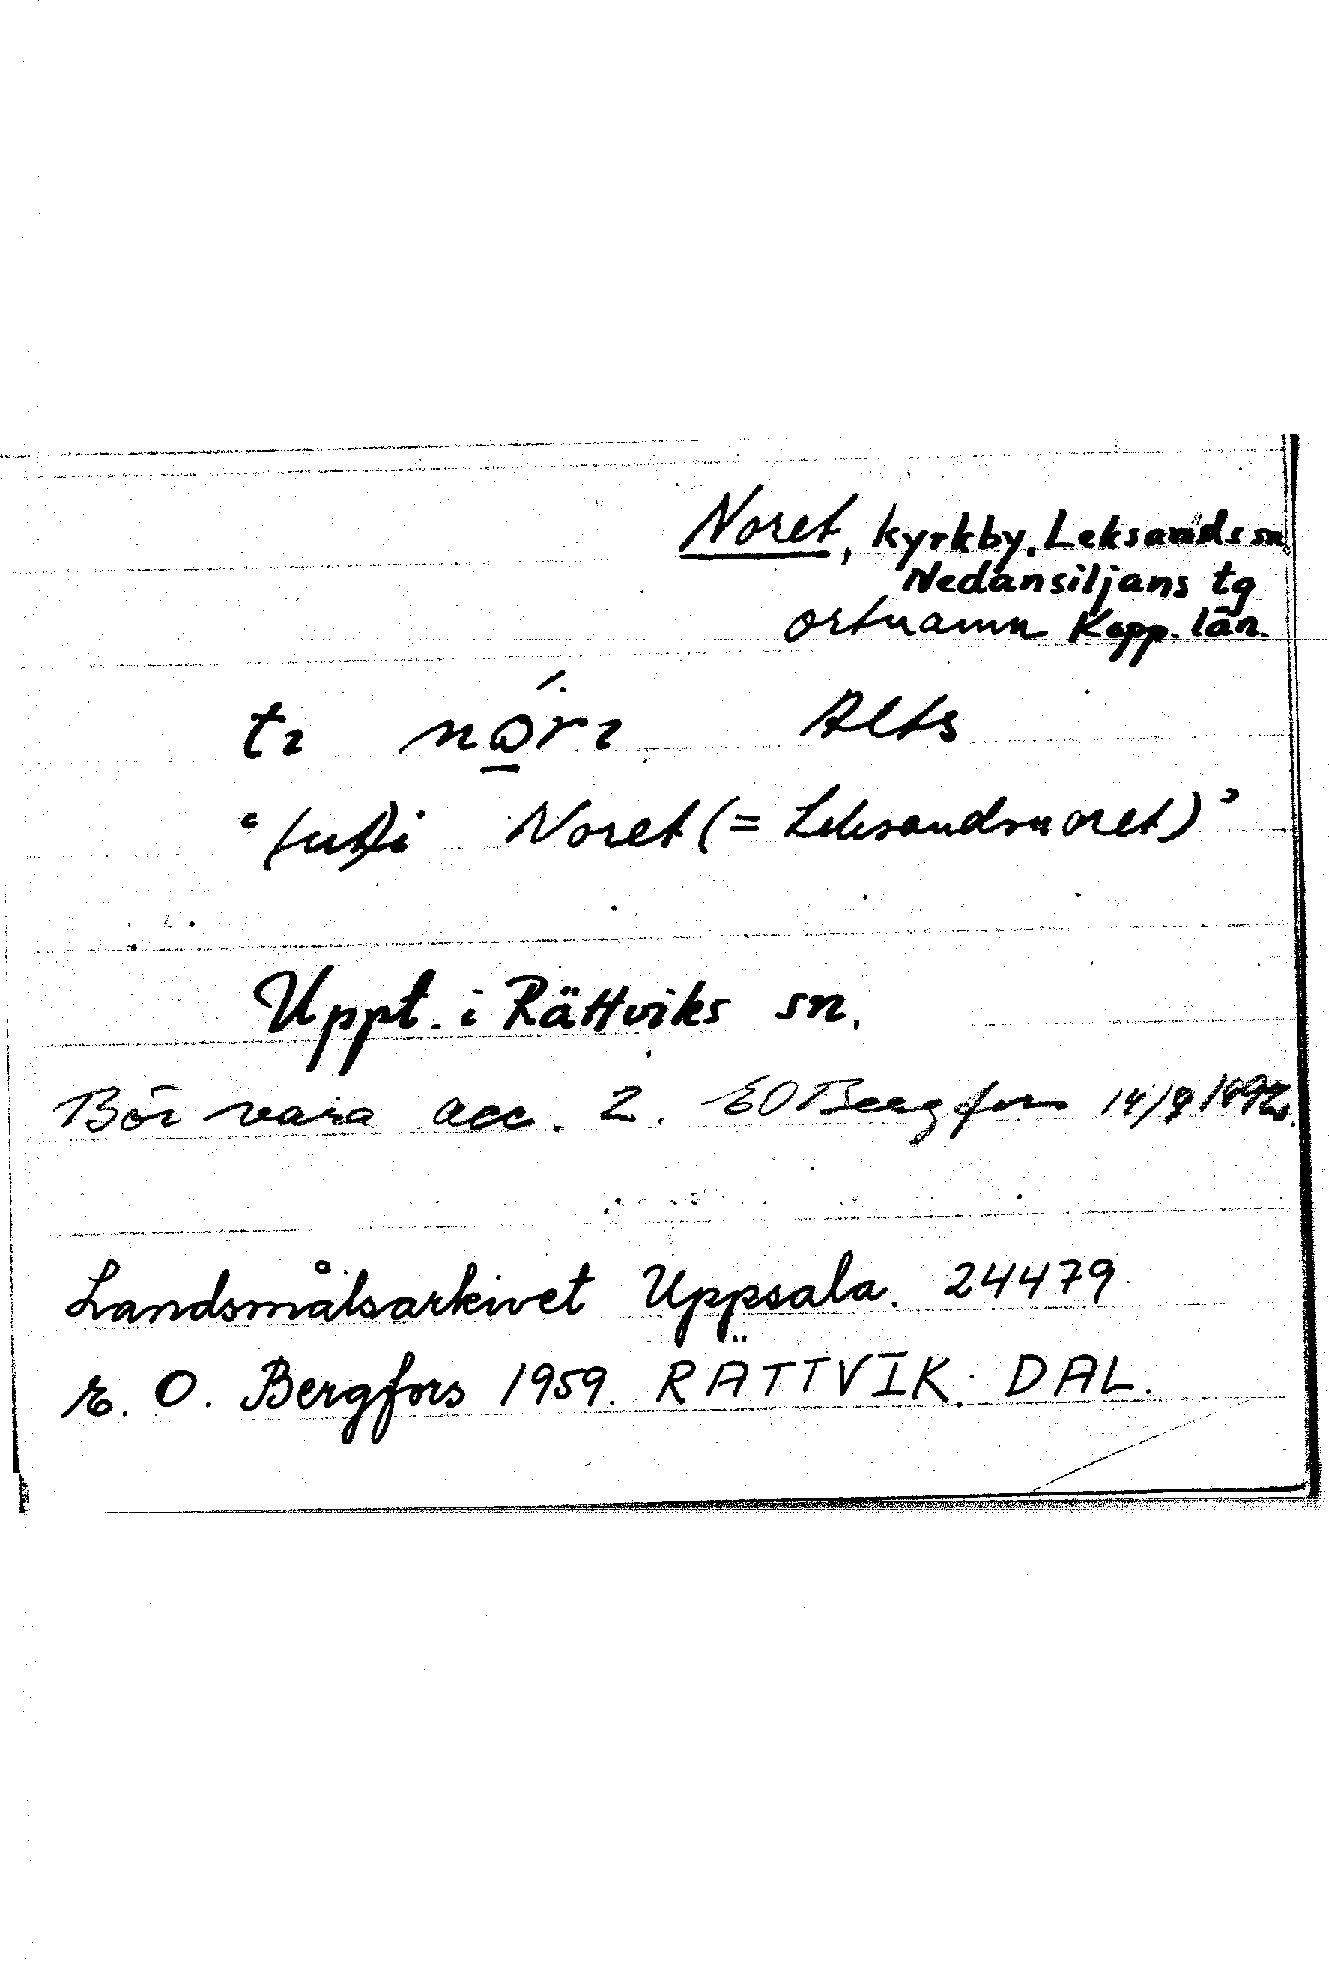 Noret, kyrkby, Leksands sn
Nedansiljans tg
ortnamn Kopp. län.
Alts
"(ut)i Noret (= Leksandsnoret)"
Uppt. i Rättviks sn.
Bör vara acc. 2. EO Bergfors 14/9
Landsmålsarkivet Uppsala. 24479
E. O. Bergfors 1959. RÄTTVIK. DAL.